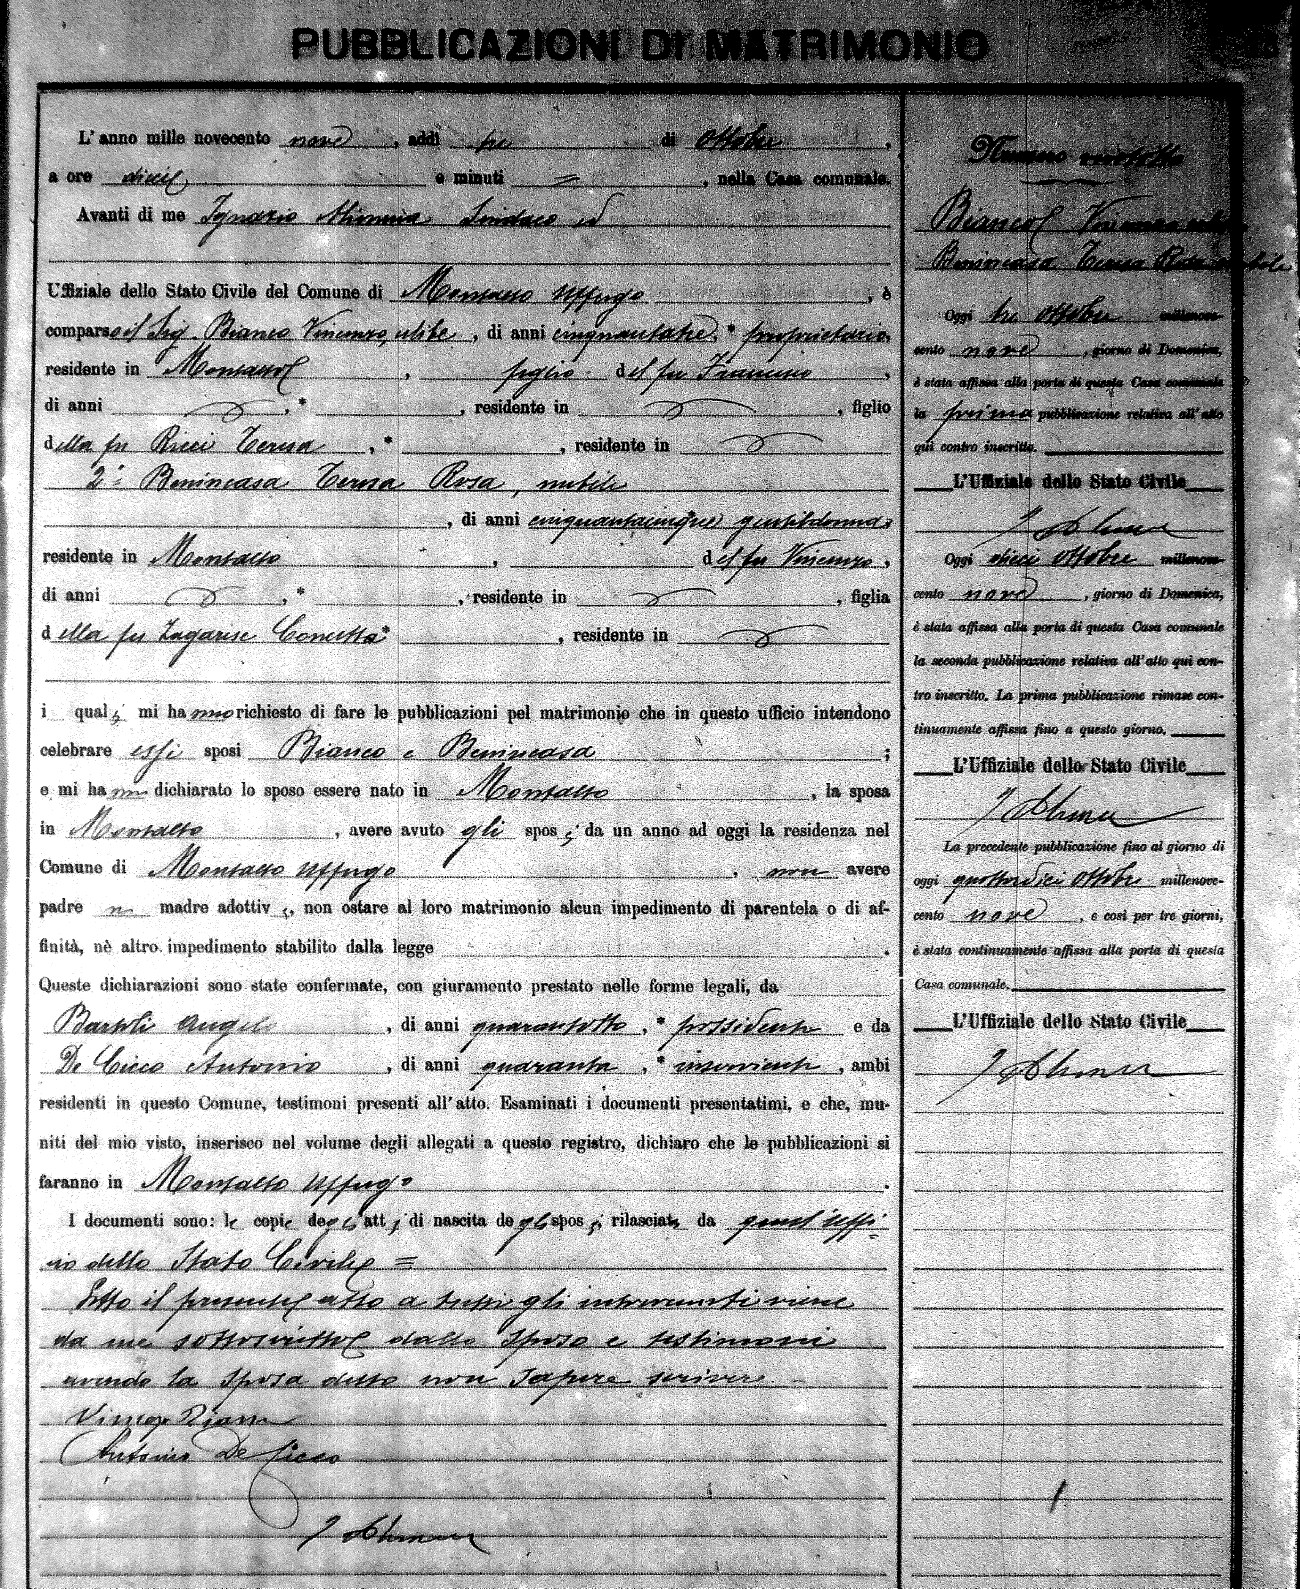 PUBBLICAZIONI DI MATRIMONIO
L'anno mille novecento nove, addì tre di Ottobre,
a ore dieci e minuti =, nella Casa comunale.
Avanti di me Ignazio Alimena Sindaco ed
Uffiziale dello Stato Civile del Comune di Montalto Uffugo, è
comparso il Sig. Bianco Vincenzo, celibe, di anni cinquantatre,* proprietario,
residente in Montalto, figlio del fu Francesco,
di anni ,* , residente in , figlio
della fu Ricci Teresa ,* , residente in
2° Benincasa Teresa Rosa, nubile
, di anni cinquantacinque gentildonna,
residente in Montalto , del fu Vincenzo,
di anni ,* , residente in , figlia
della fu Zagarese Concetta* , residente in
i quali mi hanno richiesto di fare le pubblicazioni pel matrimonio che in questo ufficio intendono
celebrare essi sposi Bianco e Benincasa ;
e mi hanno dichiarato lo sposo essere nato in Montalto , la sposa
in Montalto , avere avuto gli sposi da un anno ad oggi la residenza nel
Comune di Montalto Uffugo , non avere
padre nè madre adottivi, non ostare al loro matrimonio alcun impedimento di parentela o di af-
finità, nè altro impedimento stabilito dalla legge .
Queste dichiarazioni sono state confermate, con giuramento prestato nelle forme legali, da
Bartoli Angelo , di anni quarantotto,* possidente e da
De Cicco Antonio , di anni quaranta,* inserviente, ambi
residenti in questo Comune, testimoni presenti all'atto. Esaminati i documenti presentatimi, e che, mu-
niti del mio visto, inserisco nel volume degli allegati a questo registro, dichiaro che le pubblicazioni si
faranno in Montalto Uffugo .
I documenti sono: le copie degli atti di nascita degli sposi rilasciate da quest'uffi=
cio dello Stato Civile =
Letto il presente atto a tutti gli intervenuti viene
da me sottoscritto dallo sposo e testimoni
avendo la sposa detto non sapere scrivere
Antonio De Cicco
I Alimena
Numero
Bianco Vincenzo celibe
Benincasa Teresa Rosa nubile
Oggi tre ottobre millenove-
cento nove, giorno di Domenica,
è stata affissa alla porta di questa Casa comunale
la prima pubblicazione relativa all'atto
qui contro inscritto.
L'Uffiziale dello Stato Civile
I Alimena
Oggi dieci ottobre millenove-
cento nove, giorno di Domenica,
è stata affissa alla porta di questa Casa comunale
la seconda pubblicazione relativa all'atto qui con-
tro inscritto. La prima pubblicazione rimase con-
tinuamente affissa fino a questo giorno.
L'Uffiziale dello Stato Civile
I Alimena
La precedente pubblicazione fino al giorno di
oggi quattordici ottobre millenove-
cento nove, e così per tre giorni,
è stata continuamente affissa alla porta di questa
Casa comunale.
L'Uffiziale dello Stato Civile
I Alimena